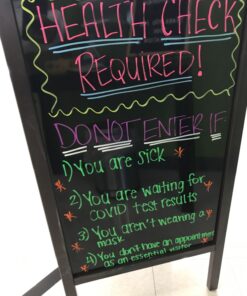 HEALTH CHECK
REQUIRED!
DO NOT ENTER IF
1) You are sick
2) You are waiting for
COVID test results
3) You aren't wearing a
mask
4) You don't have an appointment
as an essential visitor